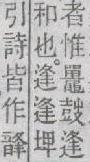 者惟鼉鼓逢
和也。逢逢埤
引詩皆作韸